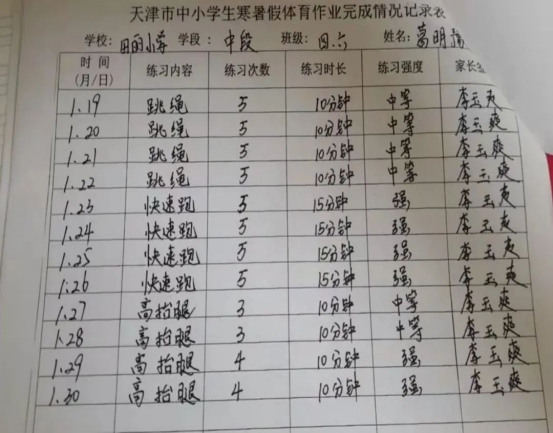 天津市中小学生寒暑假体育作业完成情况记录表
学校: 小学 学段: 中段 班级: 四六 姓名: 葛明
时间(月/日) 练习内容 练习次数 练习时长 练习强度 家长
1.19 跳绳 5 10分钟 中等 李玉爽
1.20 跳绳 5 10分钟 中等 李玉爽
1.21 跳绳 5 10分钟 中等 李玉爽
1.22 跳绳 5 10分钟 中等 李玉爽
1.23 快速跑 5 15分钟 强 李玉爽
1.24 快速跑 5 15分钟 强 李玉爽
1.25 快速跑 5 15分钟 强 李玉爽
1.26 快速跑 5 15分钟 强 李玉爽
1.27 高抬腿 3 10分钟 中等 李玉爽
1.28 高抬腿 3 10分钟 中等 李玉爽
1.29 高抬腿 4 10分钟 强 李玉爽
1.30 高抬腿 4 10分钟 强 李玉爽